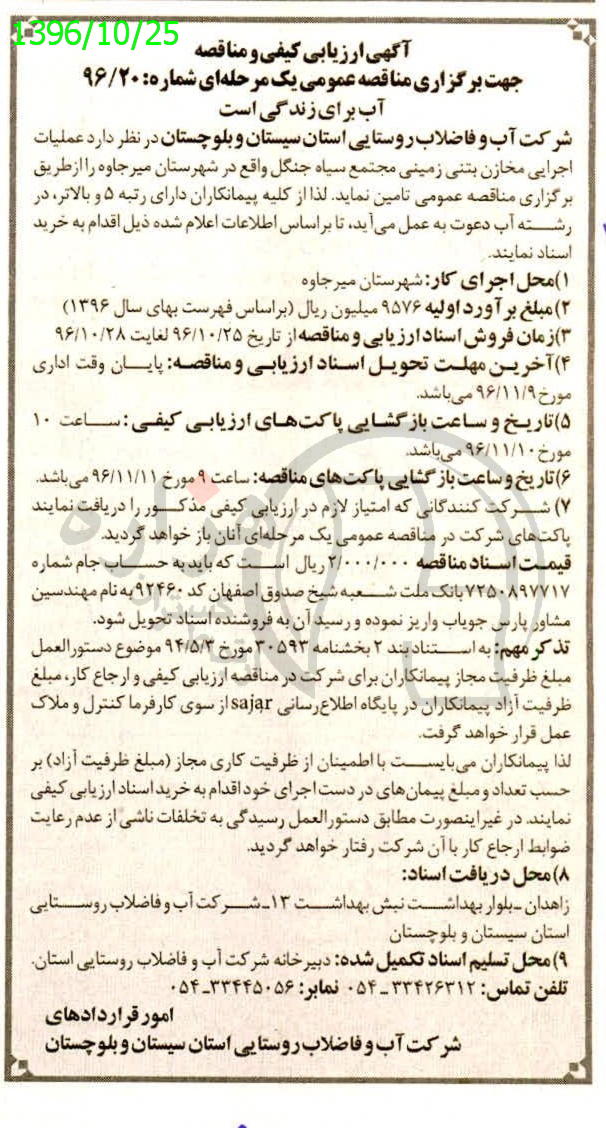 1396/10/25
آگهی ارزیابی کیفی و مناقصه
جهت برگزاری مناقصه عمومی یک مرحله‌ای شماره: ۹۶/۲۰
آب برای زندگی است
شرکت آب و فاضلاب روستایی استان سیستان و بلوچستان در نظر دارد عملیات
اجرایی مخازن بتنی زمینی مجتمع سیاه جنگل واقع در شهرستان میرجاوه را از طریق
برگزاری مناقصه عمومی تامین نماید. لذا از کلیه پیمانکاران دارای رتبه ۵ و بالاتر، در
رشته آب دعوت به عمل می‌آید، تا براساس اطلاعات اعلام شده ذیل اقدام به خرید
اسناد نمایند.
۱) محل اجرای کار: شهرستان میرجاوه
۲) مبلغ برآورد اولیه ۹۵۷۶ میلیون ریال (براساس فهرست بهای سال ۱۳۹۶)
۳) زمان فروش اسناد ارزیابی و مناقصه از تاریخ ۹۶/۱۰/۲۵ لغایت ۹۶/۱۰/۲۸
۴) آخرین مهلت تحویل اسناد ارزیابی و مناقصه: پایان وقت اداری
مورخ ۹۶/۱۱/۹ می‌باشد.
۵) تاریخ و ساعت بازگشایی پاکت‌های ارزیابی کیفی: ساعت ۱۰
مورخ ۹۶/۱۱/۱۰ می‌باشد.
۶) تاریخ و ساعت بازگشایی پاکت‌های مناقصه: ساعت ۹ مورخ ۹۶/۱۱/۱۱ می‌باشد.
۷) شرکت کنندگانی که امتیاز لازم در ارزیابی کیفی مذکور را دریافت نمایند
پاکت‌های شرکت در مناقصه عمومی یک مرحله‌ای آنان باز خواهد گردید.
قیمت اسناد مناقصه ۲/۰۰۰/۰۰۰ ریال است که باید به حساب جام شماره
۷۲۵۰۸۹۷۷۱۷ بانک ملت شعبه شیخ صدوق اصفهان کد ۹۲۴۶۰ به نام مهندسین
مشاور پارس جویاب واریز نموده و رسید آن به فروشنده اسناد تحویل شود.
تذکر مهم: به استناد بند ۲ بخشنامه ۳۰۵۹۳ مورخ ۹۴/۵/۳ موضوع دستورالعمل
مبلغ ظرفیت مجاز پیمانکاران برای شرکت در مناقصه ارزیابی کیفی و ارجاع کار، مبلغ
ظرفیت آزاد پیمانکاران در پایگاه اطلاع‌رسانی sajar از سوی کارفرما کنترل و ملاک
عمل قرار خواهد گرفت.
لذا پیمانکاران می‌بایست با اطمینان از ظرفیت کاری مجاز (مبلغ ظرفیت آزاد) بر
حسب تعداد و مبلغ پیمان‌های در دست اجرای خود اقدام به خرید اسناد ارزیابی کیفی
نمایند. در غیر اینصورت مطابق دستورالعمل رسیدگی به تخلفات ناشی از عدم رعایت
ضوابط ارجاع کار با آن شرکت رفتار خواهد گردید.
۸) محل دریافت اسناد:
زاهدان ـ بلوار بهداشت نبش بهداشت ۱۳ ـ شرکت آب و فاضلاب روستایی
استان سیستان و بلوچستان
۹) محل تسلیم اسناد تکمیل شده: دبیرخانه شرکت آب و فاضلاب روستایی استان.
تلفن تماس: ۳۳۴۲۶۳۱۲ ـ ۰۵۴ نمابر: ۳۳۴۴۵۰۵۶ـ ۰۵۴
امور قراردادهای
شرکت آب و فاضلاب روستایی استان سیستان و بلوچستان